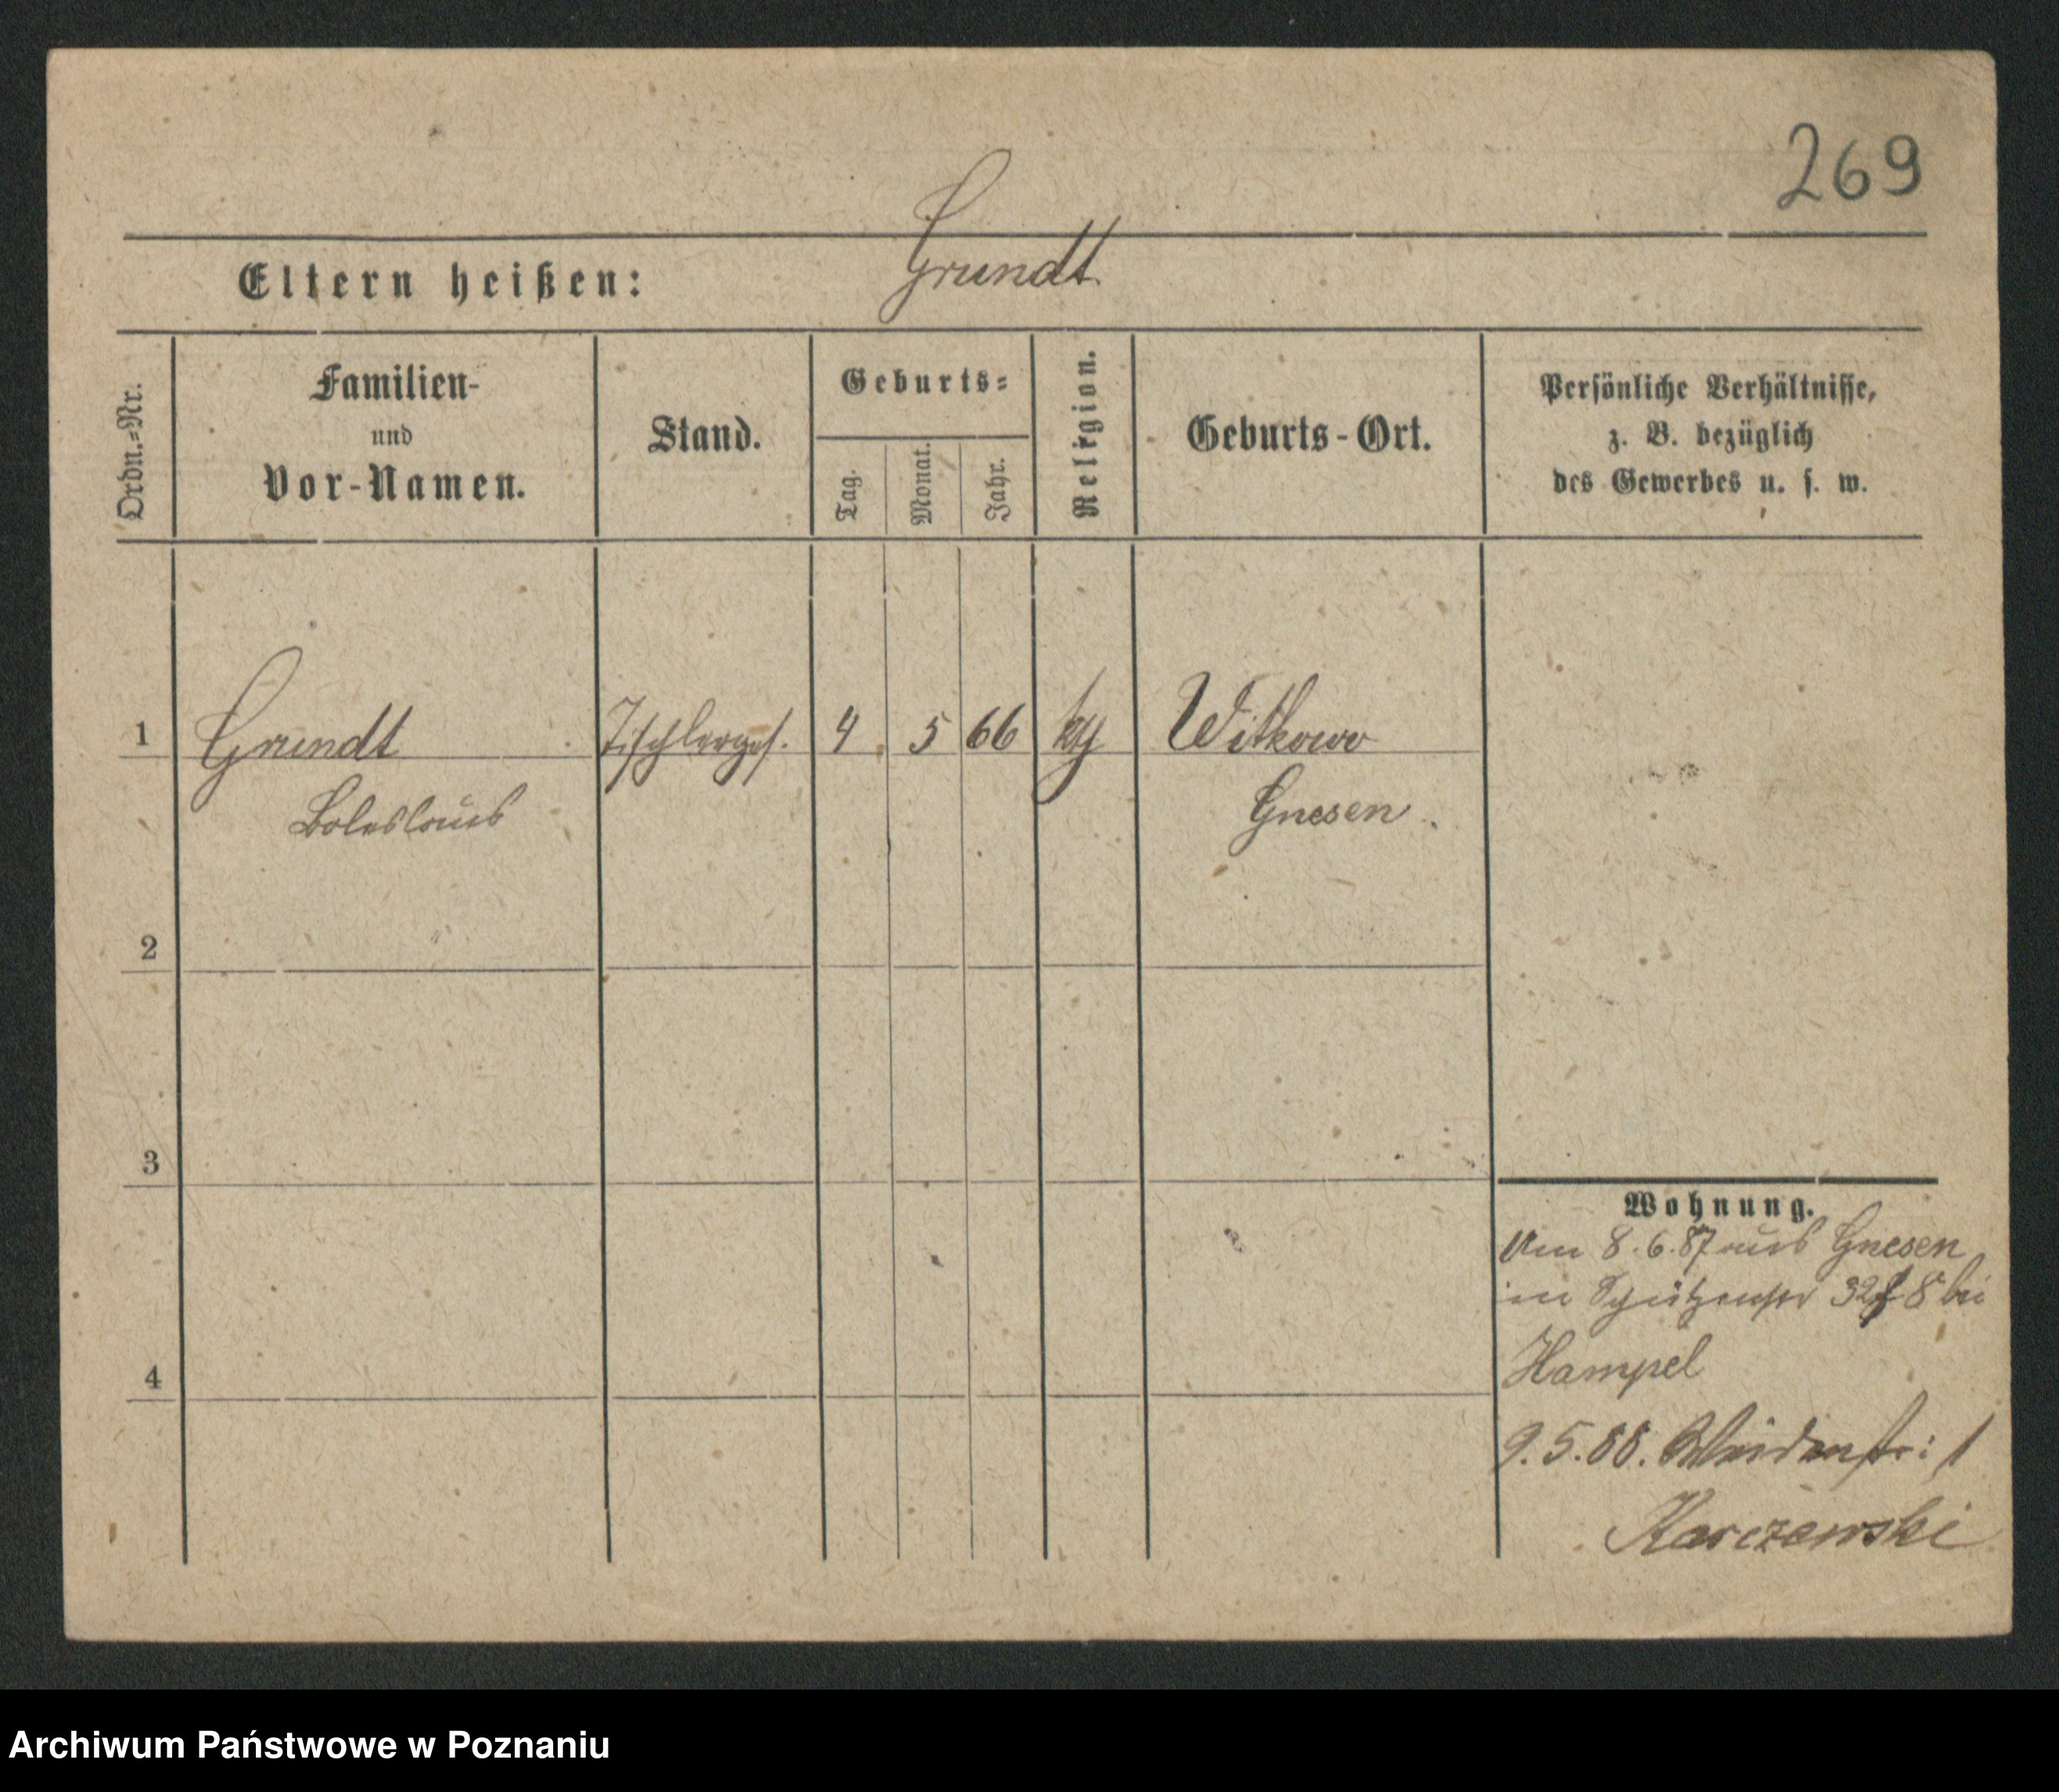 269
Grundt
Eltern heißen:
Ordn.-Nr.
Familien-
und
Vor-Namen.
Stand.
Geburts-
Tag.
Monat.
Jahr.
Religion.
Geburts-Ort.
Persönliche Verhältnisse,
z. B. bezüglich
des Gewerbes u. s. w.
1 Grundt Tischlerges. 4 5 66 kth Witkowo
Boleslaus Gnesen
2
3
4
Wohnung.
Am 8.6.87 aus Gnesen
in Schützenstr 32 8 bei
Hampel
9.5.88. Weidenstr: 1
Karczewski
Archiwum Państwowe w Poznaniu